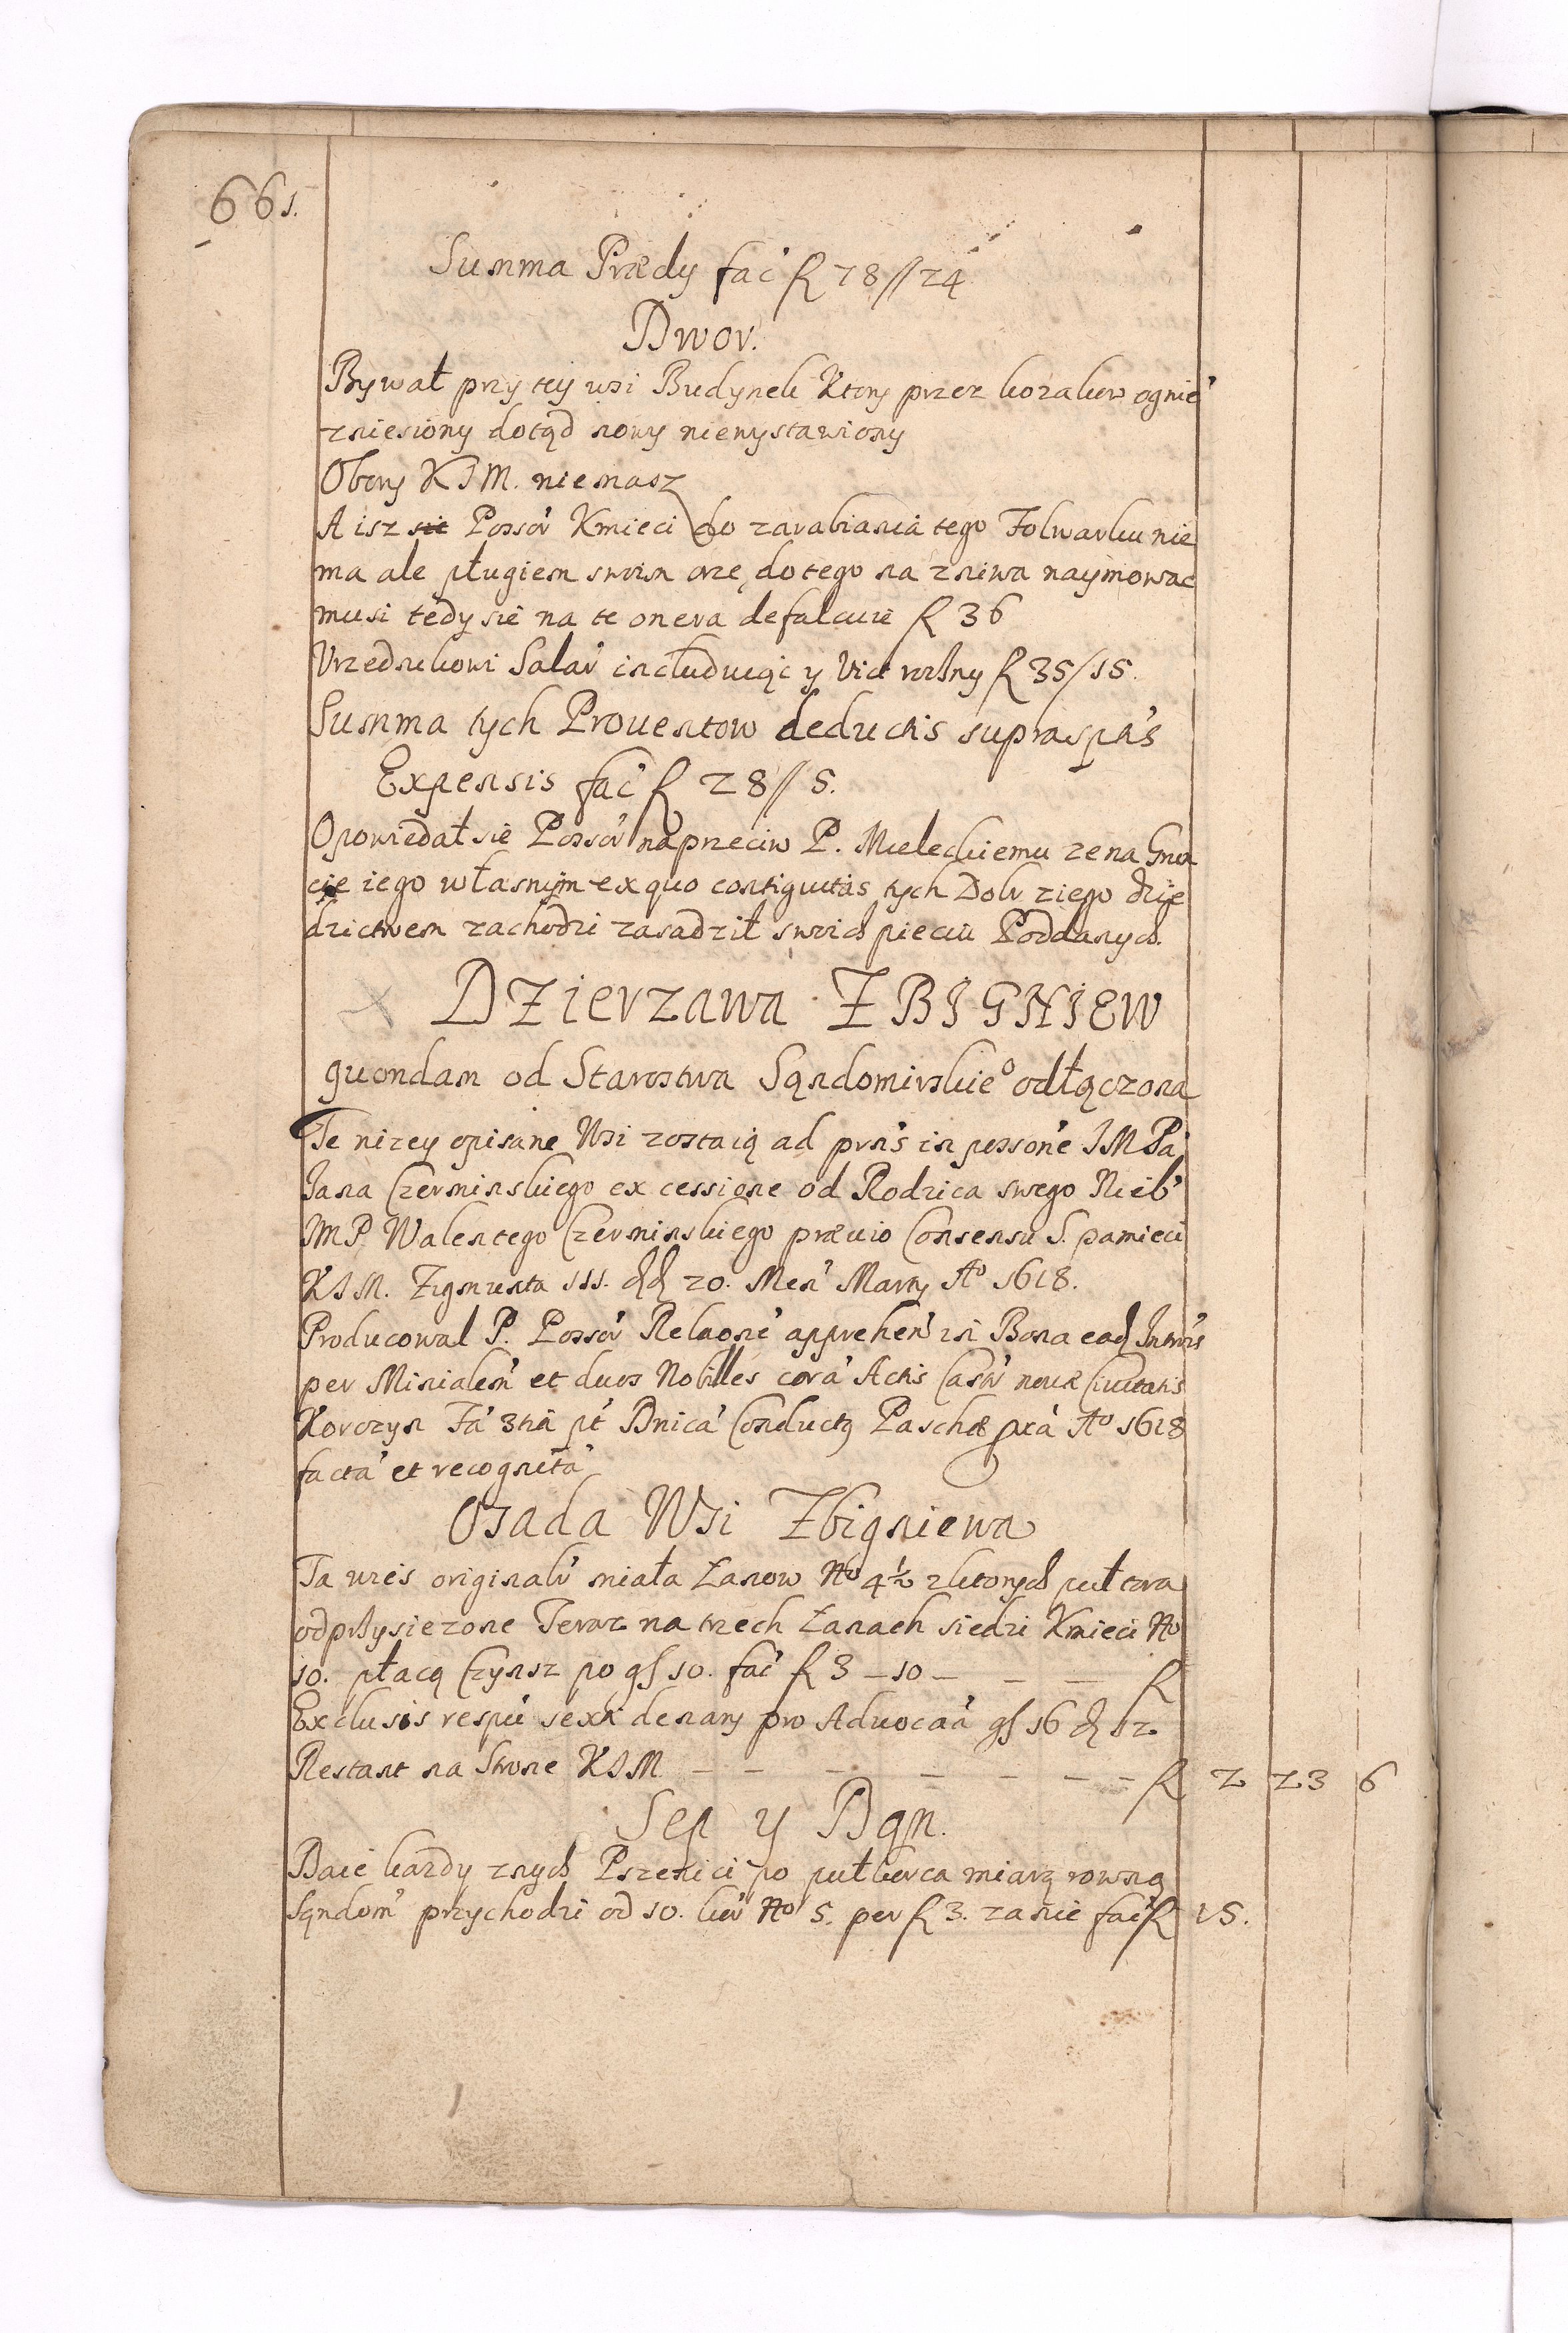 661.
Summa Prædy fac' fl 78//24
Dwor.
Bywał przy tey wsi Budynek Ktory przez kozakow ognie'
zniesiony dotąd nowy niewystawiony
Obory KJM. niemasz
A isz sie Possor' Kmieci do zarabiania tego Folwarku nie
ma ale pługiem swoim orze, do tego na zniwa naymowac
musi tedy sie na te onera defalcuie fl 36
Vrzednikowi Salar' includuiąc y Vict rozny fl 35/15.
Summa tych Prouentow deductis supraspt's
Expensis fac' fl 28//5.
Opowiedał sie Possor' naprzeciw P. Mieleckiemu ze na Grun
cie iego własnym ex quo contiguitas tych Dobr z iego dzie
dzictwem zachodzi zasadził swoich pieciu Poddanych.
DZierzawa ZBIGNIEW
quondam od Starostwa Sąndomirskieo odłączona
Te nizey opisane Wsi zostaią ad prn's in persone' JMPa'
Jana Czerminskiego ex cessione od Rodzica swego Nieb'
JMP Walentego Czerminskiego præuio Consensu S. pamieci
KJM. Zigmunta III. dd 20. Men' Marty Ao 1618.
Producowal P. Possor' Relaone' apprehen' in Bona ead Intro's
per Minialem' et duos Nobilles cora' Actis Castr' nouæ Ciuitatis
Korczyn Fa' 3tia pt' Dnica' Conductg Paschæ pxa' Ao 1618
facta' et recognita'
Osada Wsi Zbigniewa
Ta wies originalr' miała Łanow No 4½ z ktorych pułtora
odprzysiezone Teraz na trzech Łanach siedzi Kmieci No
10. płacą Czynsz po gs 10. fac' fl 3 – 10 – – – fl
Exclusis respu' sexti denary pro Aduocaa' gs 16 d 12
Restant na Strone KJM – – – – – – – fl 2 23 6
Sep y Dan.
Daie kazdy z nych Pszenici po puł korca miarą rowną
Sąndom' przychodzi od 10. kor' No 5. per fl 3. za nie fac' fl 15.